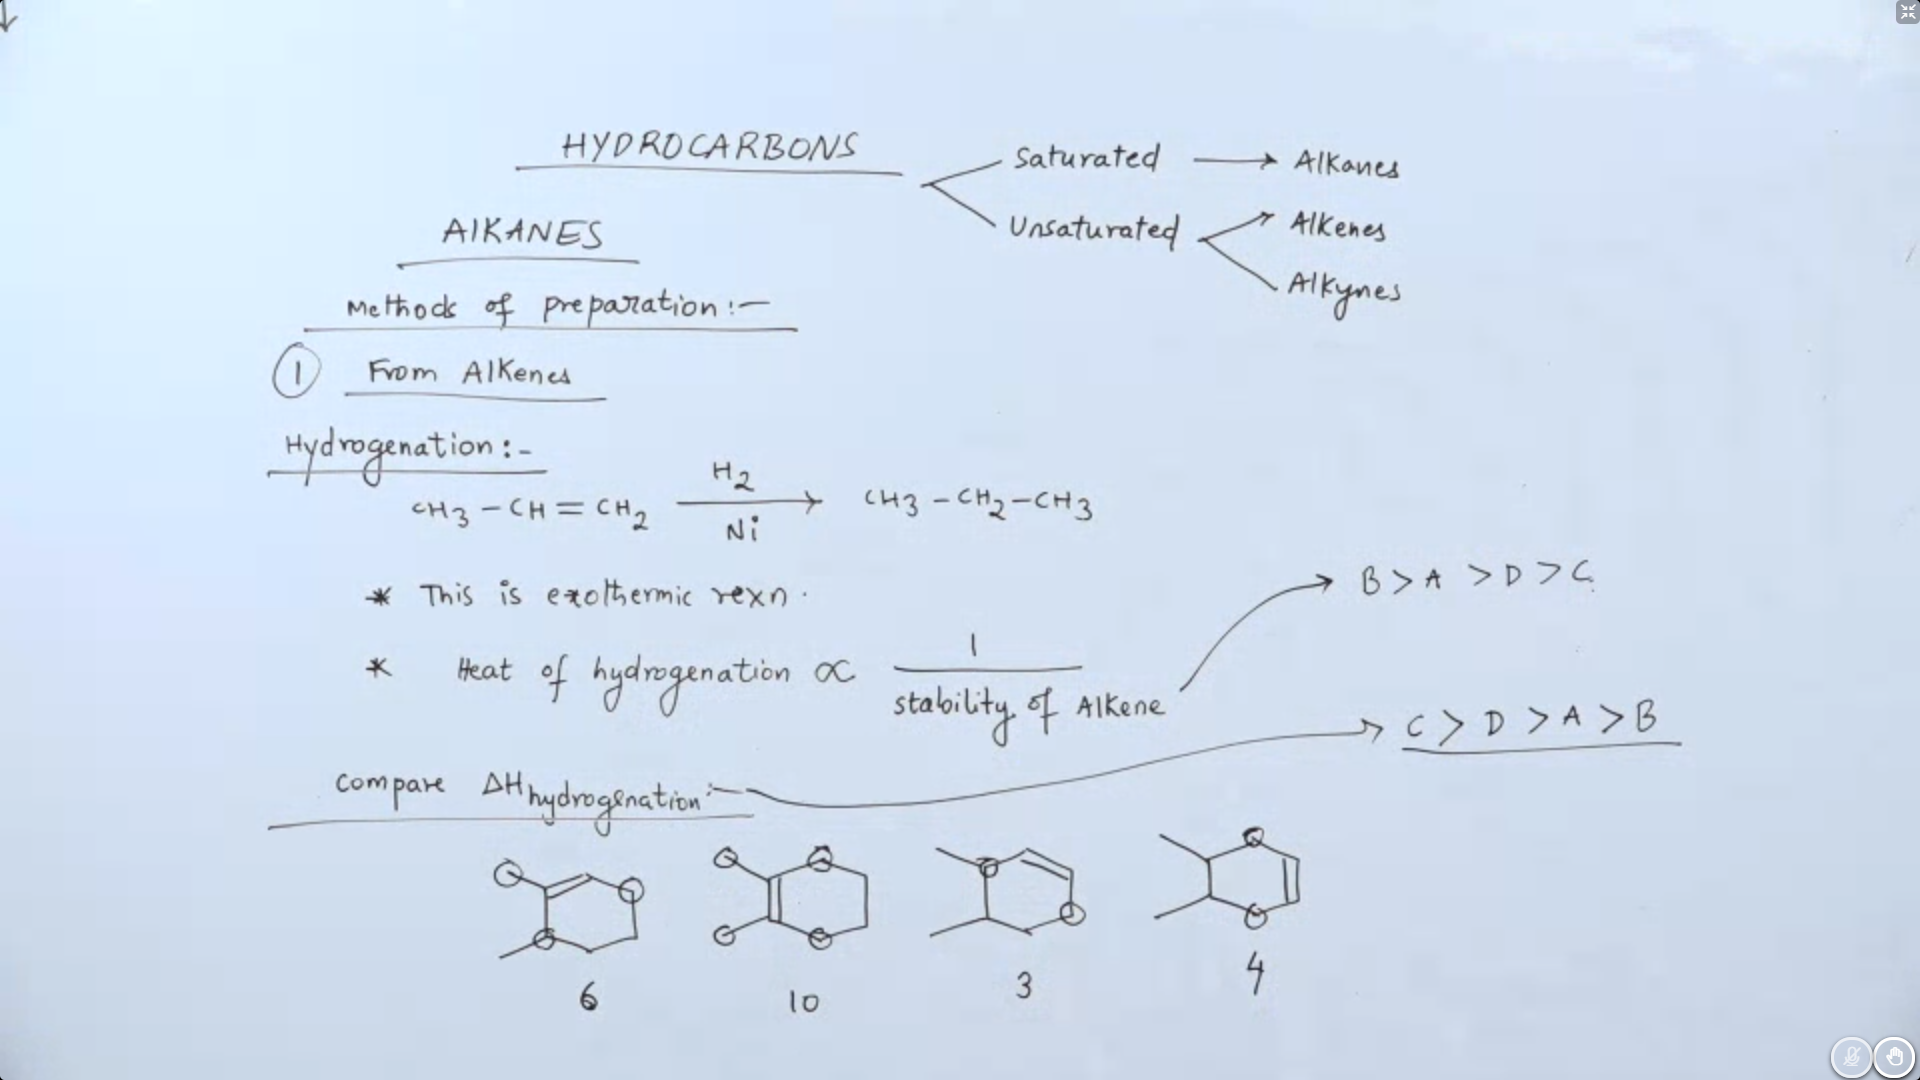 HYDROCARBONS
Saturated → Alkanes
Unsaturated → Alkenes
Alkynes
AlKANES
Methods of preparation :-
1 From Alkenes
Hydrogenation :-
CH3 - CH = CH2 H2 Ni → CH3 - CH2 - CH3
* This is exothermic rexn.
B > A > D > C
* Heat of hydrogenation ∝ 1 / stability of Alkene
C > D > A > B
compare ΔHhydrogenation :-
6 10 3 4